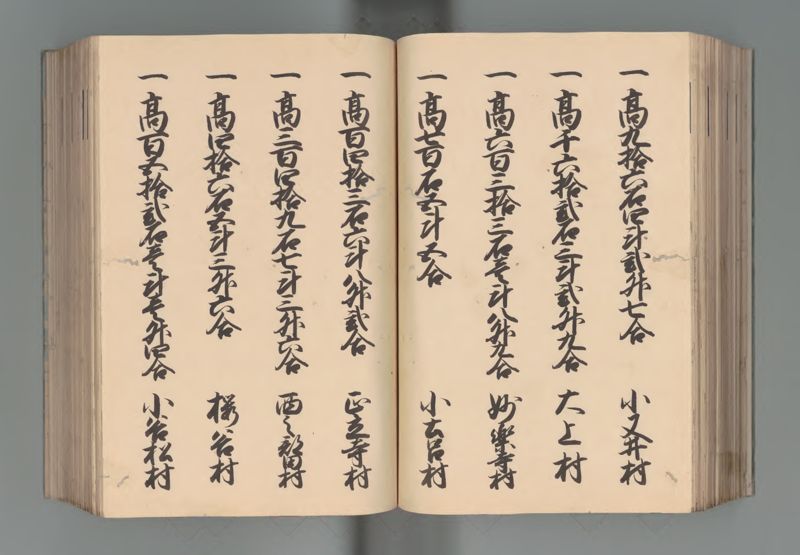 一 高九拾六石四斗弐升七合 小又井村
一 高千六拾弐石三斗弐升九合 大上村
一 高六百三拾三石壱斗八升九合 妙楽寺村
一 高七百石五斗五合 小古呂村
一 高百四拾三石六斗八升弐合 正立寺村
一 高三百四拾九石七斗三升六合 西之村
一 高四拾六石五斗三升六合 桜谷村
一 高百五拾弐石壱斗壱升四合 小谷松村